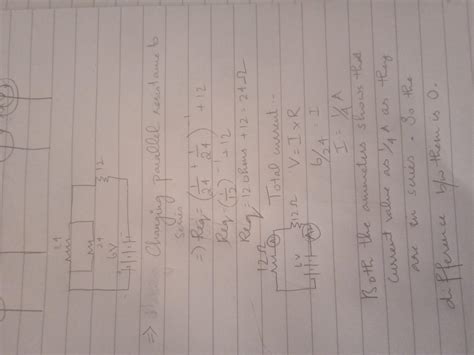 24
24
12
6V
=> Changing parallel resistance to
series
=> Req = (1/24 + 1/24)⁻¹ + 12
Req = (1/12)⁻¹ + 12
Req = 12 ohms + 12 = 24 Ω
Total current..
12Ω
A
12Ω
6V
A
V = I × R
6/24 = I
I = 1/4 A
Both the ammeters shows that
current value as 1/4 A as they
are in series. So the
difference b/w them is 0.